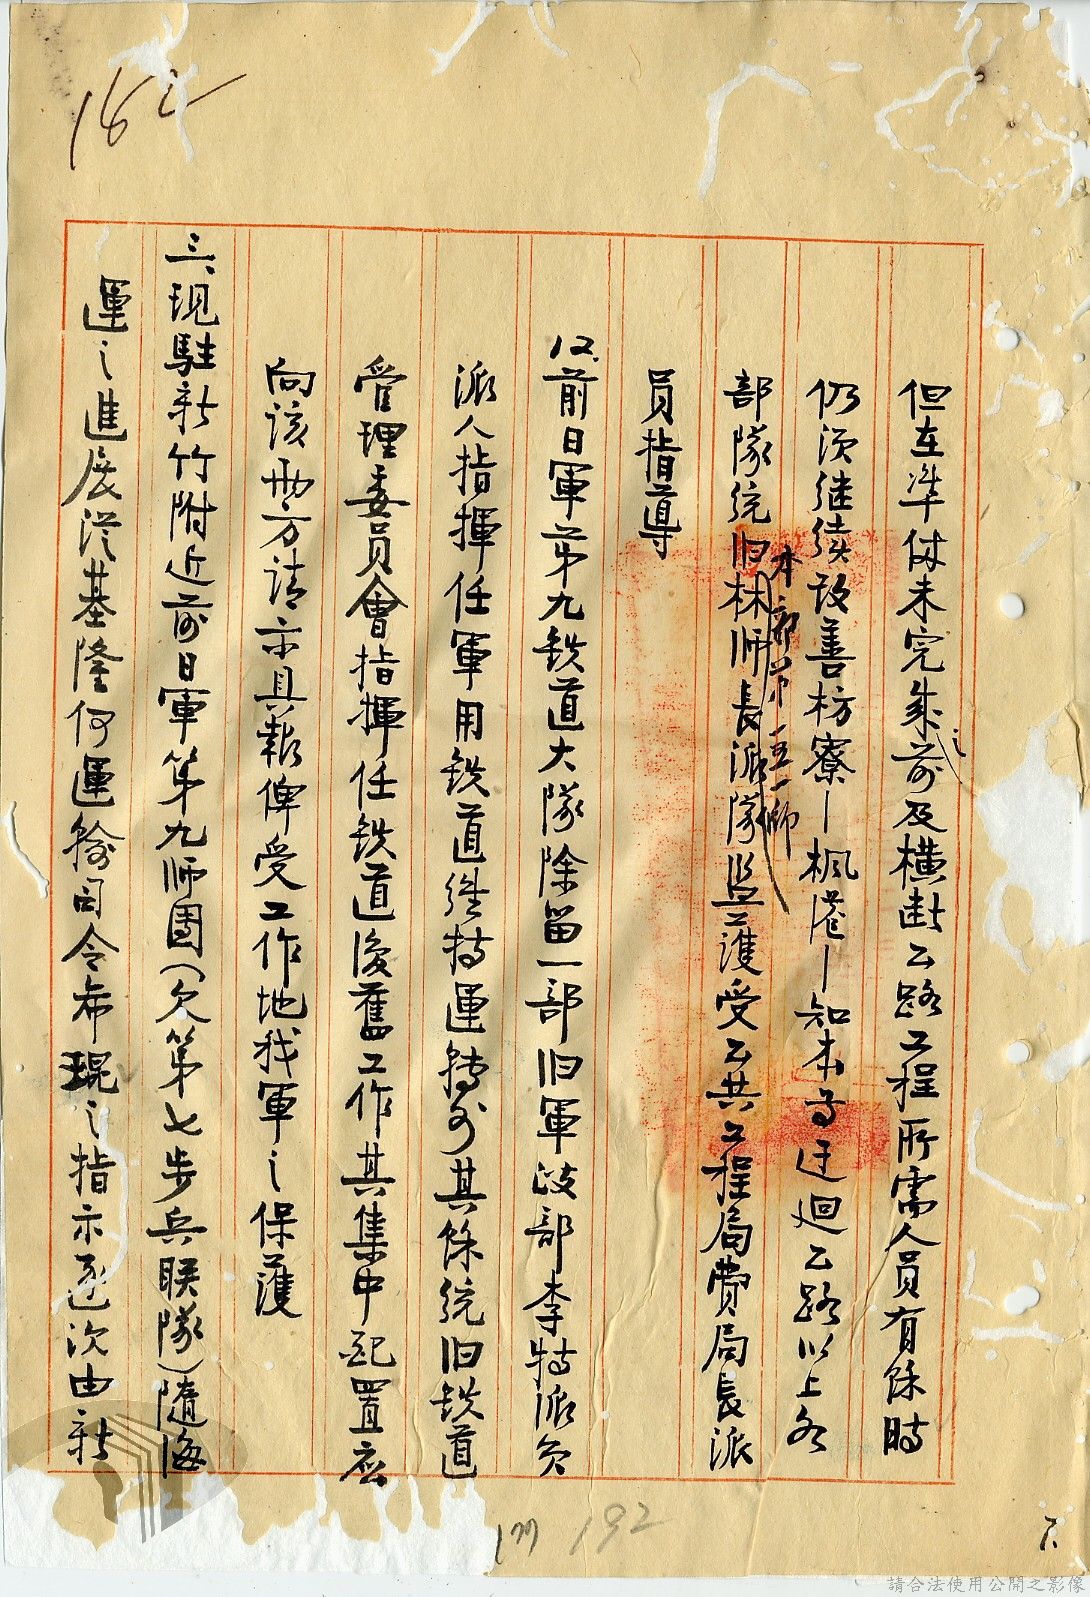 182
但在準休未完成之前及橫断公路工程所需人員有餘時
仍須继续改善枋寮—楓港—知本与迂迴公路以上各
部隊统归林师長派隊监護受公共工程局費局長派
本部第一五一師
員指導
12.前日軍第九铁道大隊除留一部归軍政部李特派員
派人指揮任軍用铁道維持運轉外其餘统归铁道
管理委員會指揮任铁道復舊工作其集中配置应
向该两方請示具報俾受工作地我軍之保護
三、現駐新竹附近前日軍第九师團(欠第七步兵联隊)隨海
運之進展從基隆何運輸司令希琨之指示逐次由新
177 192
7.
請合法使用公開之影像